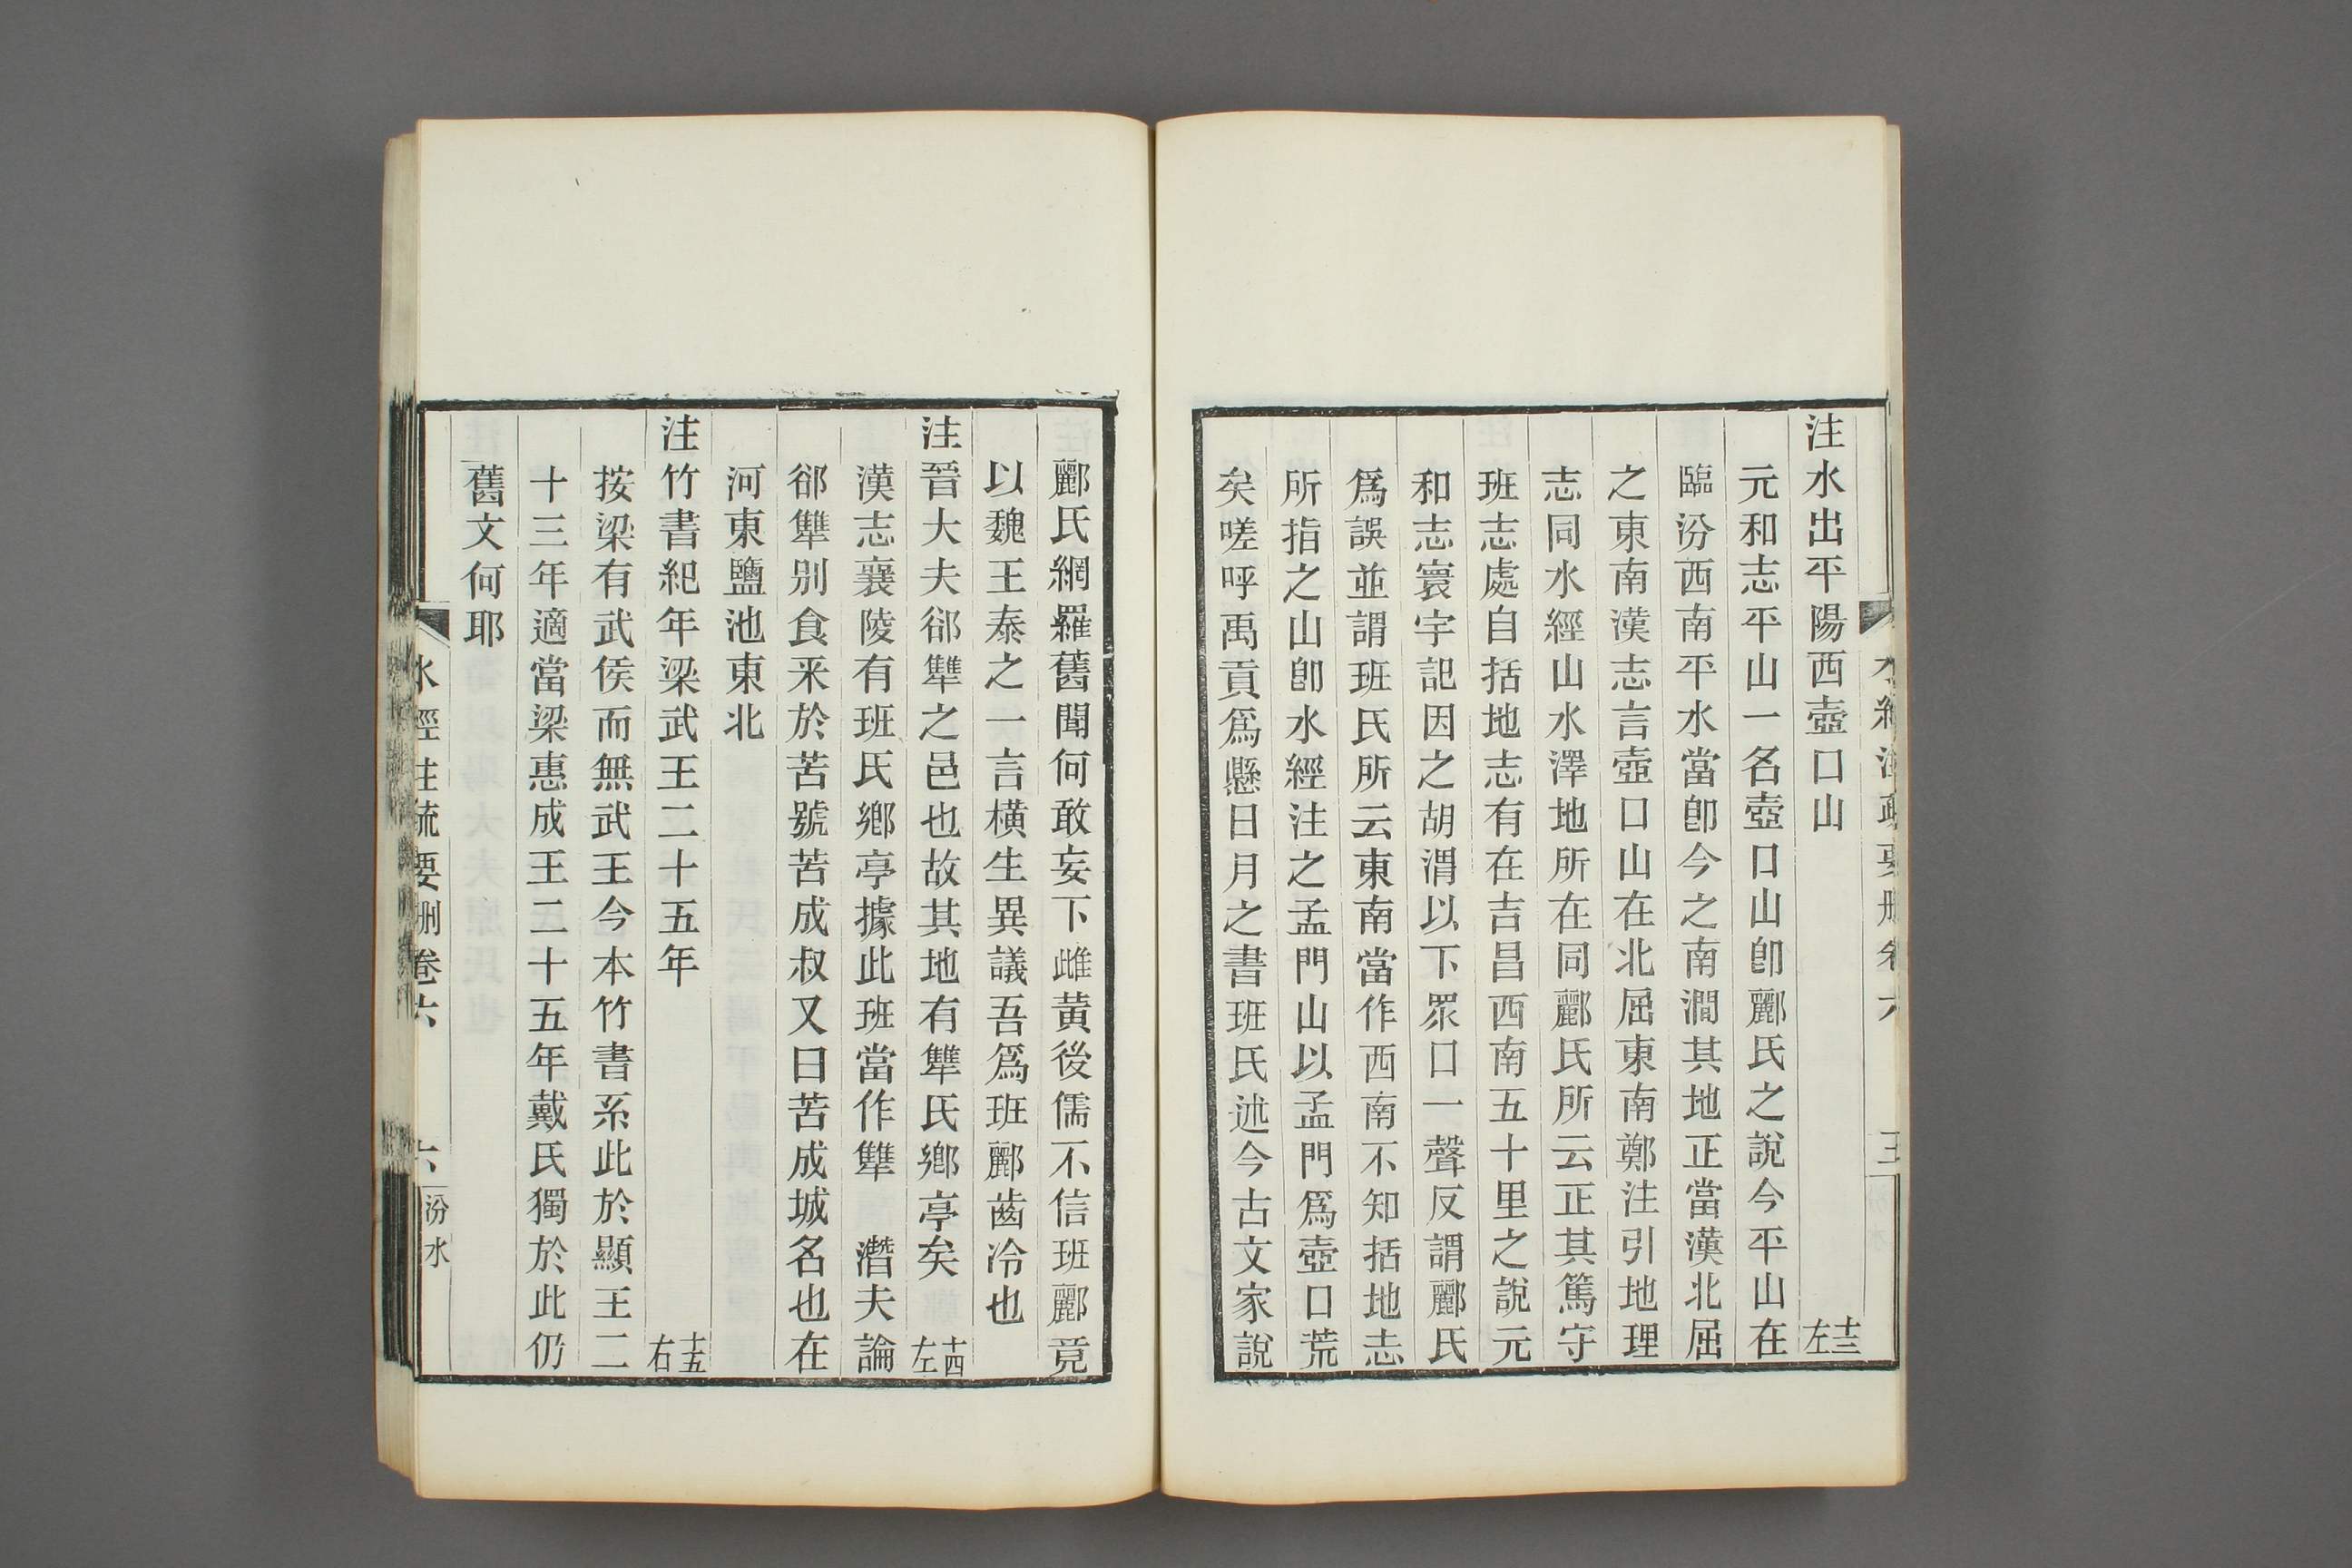 注水出平陽西壺口山 十三左
元和志平山一名壺口山卽酈氏之說今平山在
臨汾西南平水當卽今之南澗其地正當漢北屈
之東南漢志言壺口山在北屈東南鄭注引地理
志同水經山水澤地所在同酈氏所云正其篤守
班志處自括地志有在吉昌西南五十里之說元
和志寰宇記因之胡渭以下眾口一聲反謂酈氏
爲誤並謂班氏所云東南當作西南不知括地志
所指之山卽水經注之孟門山以孟門爲壺口荒
矣嗟呼禹貢爲懸日月之書班氏述今古文家說
酈氏網羅舊聞何敢妄下雌黃後儒不信班酈竟
以魏王泰之一言橫生異議吾爲班酈齒冷也
注晉大夫郤犨之邑也故其地有犨氏鄉亭矣 十四左
漢志襄陵有班氏鄉亭據此班當作犨 潛夫論
郤犨別食采於苦號苦成叔又曰苦成城名也在
河東鹽池東北
注竹書紀年梁武王二十五年 十五右
按梁有武侯而無武王今本竹書系此於顯王二
十三年適當梁惠成王二十五年戴氏獨於此仍
舊文何耶
水經注疏要刪卷六 六 汾水